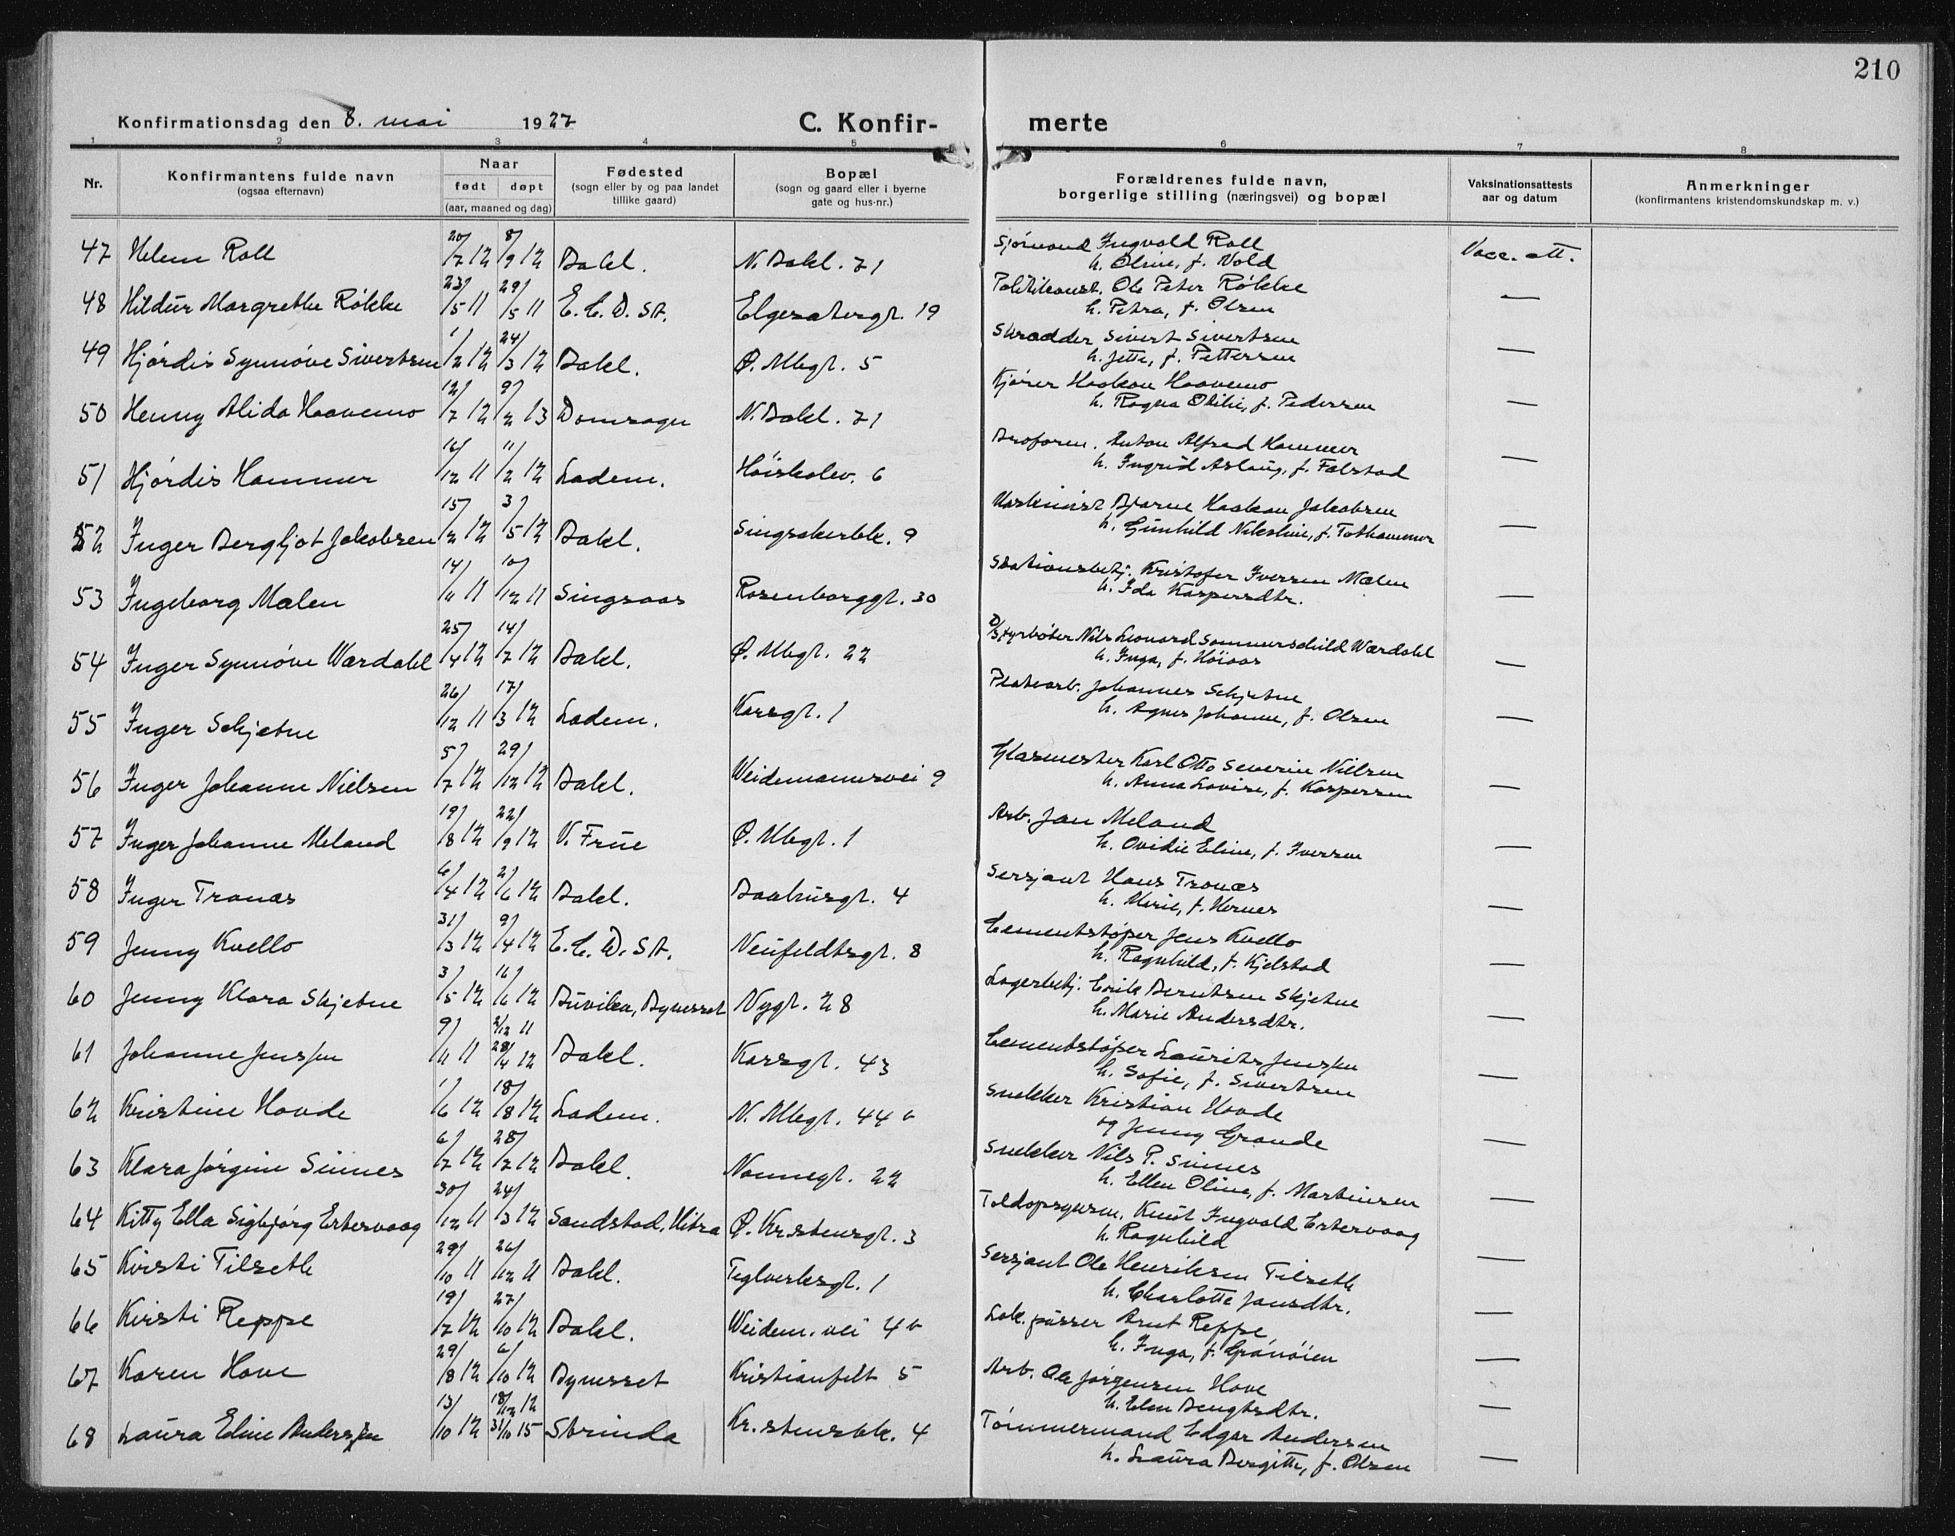 210
Konfirmationsdag den 8. mai 1927 C. Konfirmerte
1 2 3 4 5 6 7 8
Nr.
Konfirmantens fulde navn
(ogsaa efternavn)
Naar
født døpt
(aar, maaned og dag)
Fødested
(sogn eller by og paa landet
tillike gaard)
Bopæl
(sogn og gaard eller i byerne
gate og hus-nr.)
Forældrenes fulde navn,
borgerlige stilling (næringsvei) og bopæl
Vaksinationsattests
aar og datum
Anmerkninger
(konfirmantens kristendomskundskap m. v.)
47 Helene Roll 20/7 12 8/9 12 Bakl. N. Bakl. 71 Sjømand Ingvald Roll Vacc. att.
h. Oline, f. Vold
48 Hildur Margrethe Røkke 23/5 11 29/5 11 E. C. D. St. Elgesetergt. 19 Politikonst. Ole Peter Røkke —
h. Petra, f. Olsen
49 Hjørdis Synnøve Sivertsen 1/2 12 24/3 12 Bakl. Ø. Mbgt. 5 Skrædder Sivert Sivertsen —
h. Jette, f. Pettersen
50 Henny Alida Haavemo 12/7 12 9/2 13 Domsogn N. Bakl. 71 Kjører Haakon Haavemo —
h. Ragna Otilie, f. Pedersen
51 Hjørdis Hammer 16/12 11 11/2 12 Ladem. Høiskolev. 6 Broform. Anton Alfred Hammer —
h. Ingrid Aslaug, f. Falstad
52 Inger Bergljot Jakobsen 15/2 12 3/5 12 Bakl. Singsakerbk. 9 Maskinist Bjarne Haakon Jakobsen —
h. Gunhild Nikoline, f. Tothammer
53 Ingeborg Mælen 14/11 11 10/12 11 Singsaas Rosenborggt. 30 Stationsbetj. Kristofer Iversen Mælen —
h. Ida Kaspersdtr.
54 Inger Synnøve Wærdahl 25/4 12 14/7 12 Bakl. Ø. Mbgt. 22 D/S fyrbøter Nils Leonard Sommerschild Wærdahl —
h. Inga, f. Høiaas
55 Inger Schjetne 26/12 11 17/3 12 Ladem. Korsgt. 1 Platearb. Johannes Schjetne —
h. Agnes Johanne, f. Olsen
56 Inger Johanne Nielsen 5/7 12 29/12 12 Bakl. Weidemannsvei 9 Glasmester Karl Otto Severin Nielsen —
h. Anna Lovise, f. Kaspersen
57 Inger Johanne Meland 19/8 12 22/9 12 V. Frue Ø. Mbgt. 1 Arb. Jan Meland —
h. Ovidie Eline, f. Iversen
58 Inger Tranås 6/4 12 2/6 12 Bakl. Baahusgt. 4 Sersjant Hans Tronæs —
h. Marie, f. Hernes
59 Jenny Kvello 31/3 12 9/4 12 E. C. D. St. Neufeldtsgt. 8 Cementstøper Jens Kvello —
h. Ragnhild, f. Kjelstad
60 Jenny Klara Skjetne 3/5 12 16/6 12 Buvika, Bynesset Nygt. 28 Lagerbetj. Erik Berntsen Skjetne —
h. Marie Andersdtr.
61 Johanne Jenssen 9/11 11 2/12 11 28/4 12 Bakl. Korsgt. 43 Cementstøper Laurits Jenssen —
h. Sofie, f. Sivertsen
62 Kristine Hovde 1/6 12 18/8 12 Ladem. N. Mbgt. 44 b Snekker Kristian Hovde —
og Jenny Grande
63 Klara Jørgine Sinnes 6/7 12 28/7 12 Bakl. Nonnegt. 22 Snekker Nils P. Sinnes —
h. Ellen Oline, f. Martinsen
64 Kitty Ella Sigbjørg Estervaag 30/12 11 24/3 12 Sandstad, Hitra Ø. Kr.stensgt. 3 Toldopsynsm. Knut Ingvald Estervaag —
h. Ragnhild
65 Kirsti Tilseth 29/10 11 26/12 11 Bakl. Teglverksgt. 1 Sersjant Ole Henriksen Tilseth —
h. Charlotte Jansdtr.
66 Kirsti Reppe 19/7 12 27/10 12 Bakl. Weidem. vei 4 b Lok. pusser Arnt Reppe —
h. Inga, f. Grånøien
67 Karen Hove 29/8 12 6/10 12 Bynesset Kristianfelt 5 Arb. Ole Jørgensen Hove —
h. Elen Bengtsdtr.
68 Laura Eline Anderssen 13/10 12 18/12 12 31/10 15 Strinda Kr.stensbk. 4 Tømmermand Edgar Andersen —
h. Laura Bergitte, f. Olsen